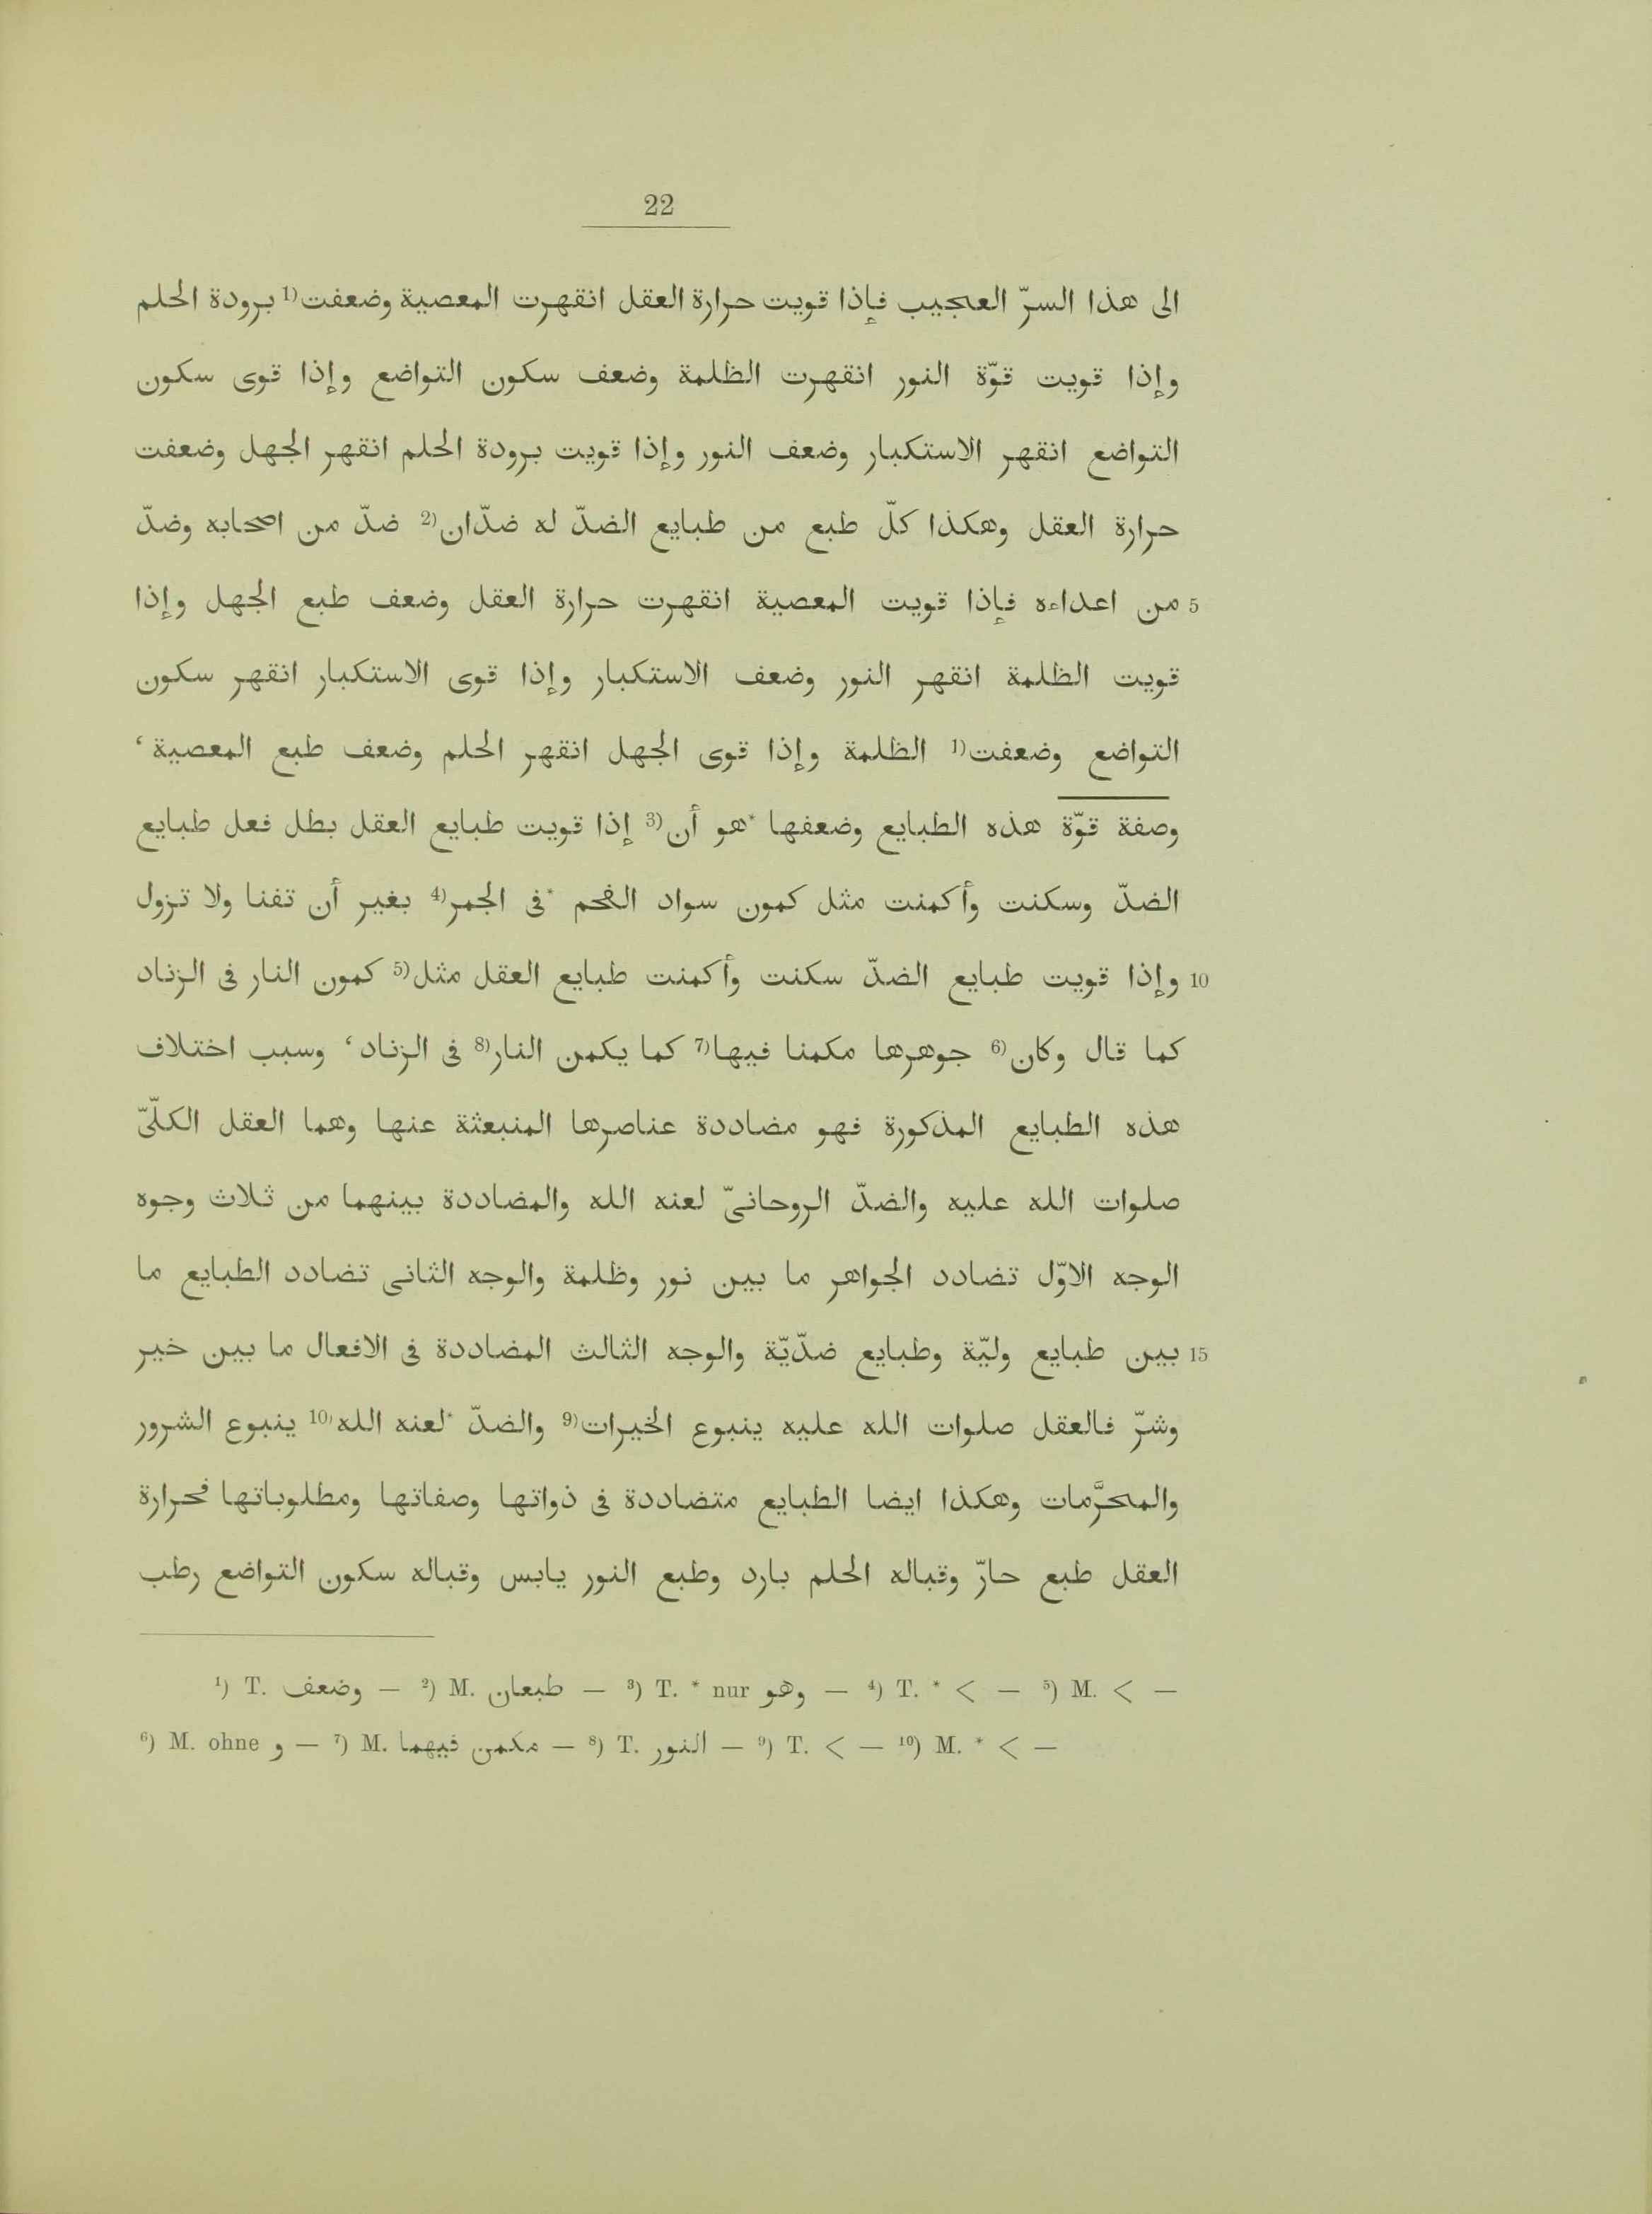 22
الى هذا السرّ العجيب فإذا قويت حرارة العقل انقهرت المعصية وضعفت¹⁾ برودة الحلم
وإذا قويت قوّة النور انقهرت الظلمة وضعف سكون التواضع وإذا قوى سكون
التواضع انقهر الاستكبار وضعف النور وإذا قويت برودة الحلم انقهر الجهل وضعفت
حرارة العقل وهكذا كلّ طبع من طبايع الضدّ له ضدّان²⁾ ضدّ من اصحابه وضدّ
5 من اعداءه فإذا قويت المعصية انقهرت حرارة العقل وضعف طبع الجهل وإذا
قويت الظلمة انقهر النور وضعف الاستكبار وإذا قوى الاستكبار انقهر سكون
التواضع وضعفت¹⁾ الظلمة وإذا قوى الجهل انقهر الحلم وضعف طبع المعصية ‘
وصفة قوّة هذه الطبايع وضعفها *هو أن³⁾ إذا قويت طبايع العقل بطل فعل طبايع
الضدّ وسكنت وأكمنت مثل كمون سواد الفحم *فى الجمر⁴⁾ بغير أن تفنا ولا تزول
10 وإذا قويت طبايع الضدّ سكنت وأكمنت طبايع العقل مثل⁵⁾ كمون النار فى الزناد
كما قال وكان⁶⁾ جوهرها مكمنا فيها⁷⁾ كما يكمن النار⁸⁾ فى الزناد ‘ وسبب اختلاف
هذه الطبايع المذكورة فهو مضاددة عناصرها المنبعثة عنها وهما العقل الكلّىّ
صلوات الله عليه والضدّ الروحانىّ لعنه الله والمضاددة بينهما من ثلاث وجوه
الوجه الاوّل تضادد الجواهر ما بين نور وظلمة والوجه الثانى تضادد الطبايع ما
15 بين طبايع وليّة وطبايع ضدّيّة والوجه الثالث المضاددة فى الافعال ما بين خير
وشرّ فالعقل صلوات الله عليه ينبوع الخيرات⁹⁾ والضدّ *لعنه الله¹⁰⁾ ينبوع الشرور
والمحرَّمات وهكذا ايضا الطبايع متضاددة فى ذواتها وصفاتها ومطلوباتها فحرارة
العقل طبع حارّ وقباله الحلم بارد وطبع النور يابس وقباله سكون التواضع رطب
¹) T. وضعف — ²) M. طبعان — ³) T. * nur وهو — ⁴) T. * < — ⁵) M. < —
⁶) M. ohne و — ⁷) M. مكمن فيهما — ⁸) T. النور — ⁹) T. < — ¹⁰) M. * < —